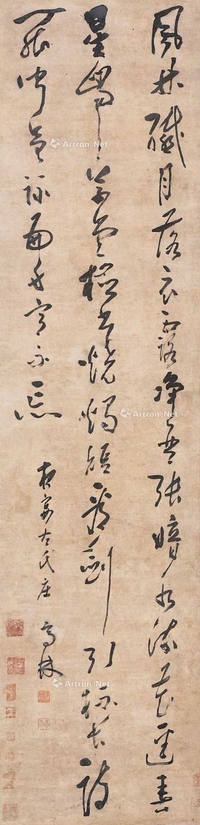 風林纖月落衣露淨琴張暗水流花徑春
星帶草堂檢書燒燭短看劍引杯長詩
罷聞吳詠扁舟意不忘
夜宴左氏庄